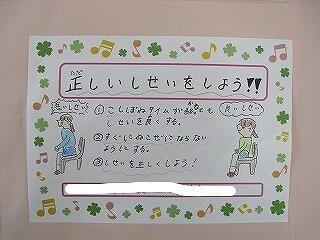 ただ
正しいしせいをしよう!!
悪いしせい
良いしせい
① こしぼねタイムが終っても
しせいを良くする。
② すぐにねこぜにならない
ようにする。
③ しせいを正しくしよう!